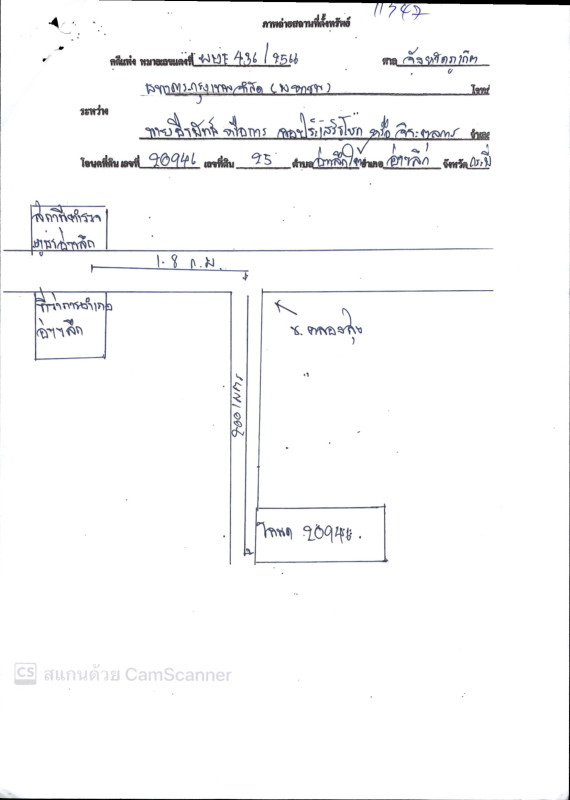 11347
ภาพถ่ายสถานที่ตั้งทรัพย์
คดีแพ่ง หมายเลขแดงที่ ผบE 436/2566 ศาล จังหวัดภูเก็ต
ธนาคารกรุงเทพ จำกัด (มหาชน) โจทก์
ระหว่าง
นาย หรือ จำเลย
โฉนดที่ดิน เลขที่ 20946 เลขที่ดิน 25 ตำบล อ่าวลึกใต้ อำเภอ อ่าวลึก จังหวัด กระบี่
สถานีตำรวจ
ภูธรอ่าวลึก
1.8 ก.ม.
ที่ว่าการอำเภอ
อ่าวลึก
ซ.
200 เมตร
โฉนด 20946.
CS สแกนด้วย CamScanner